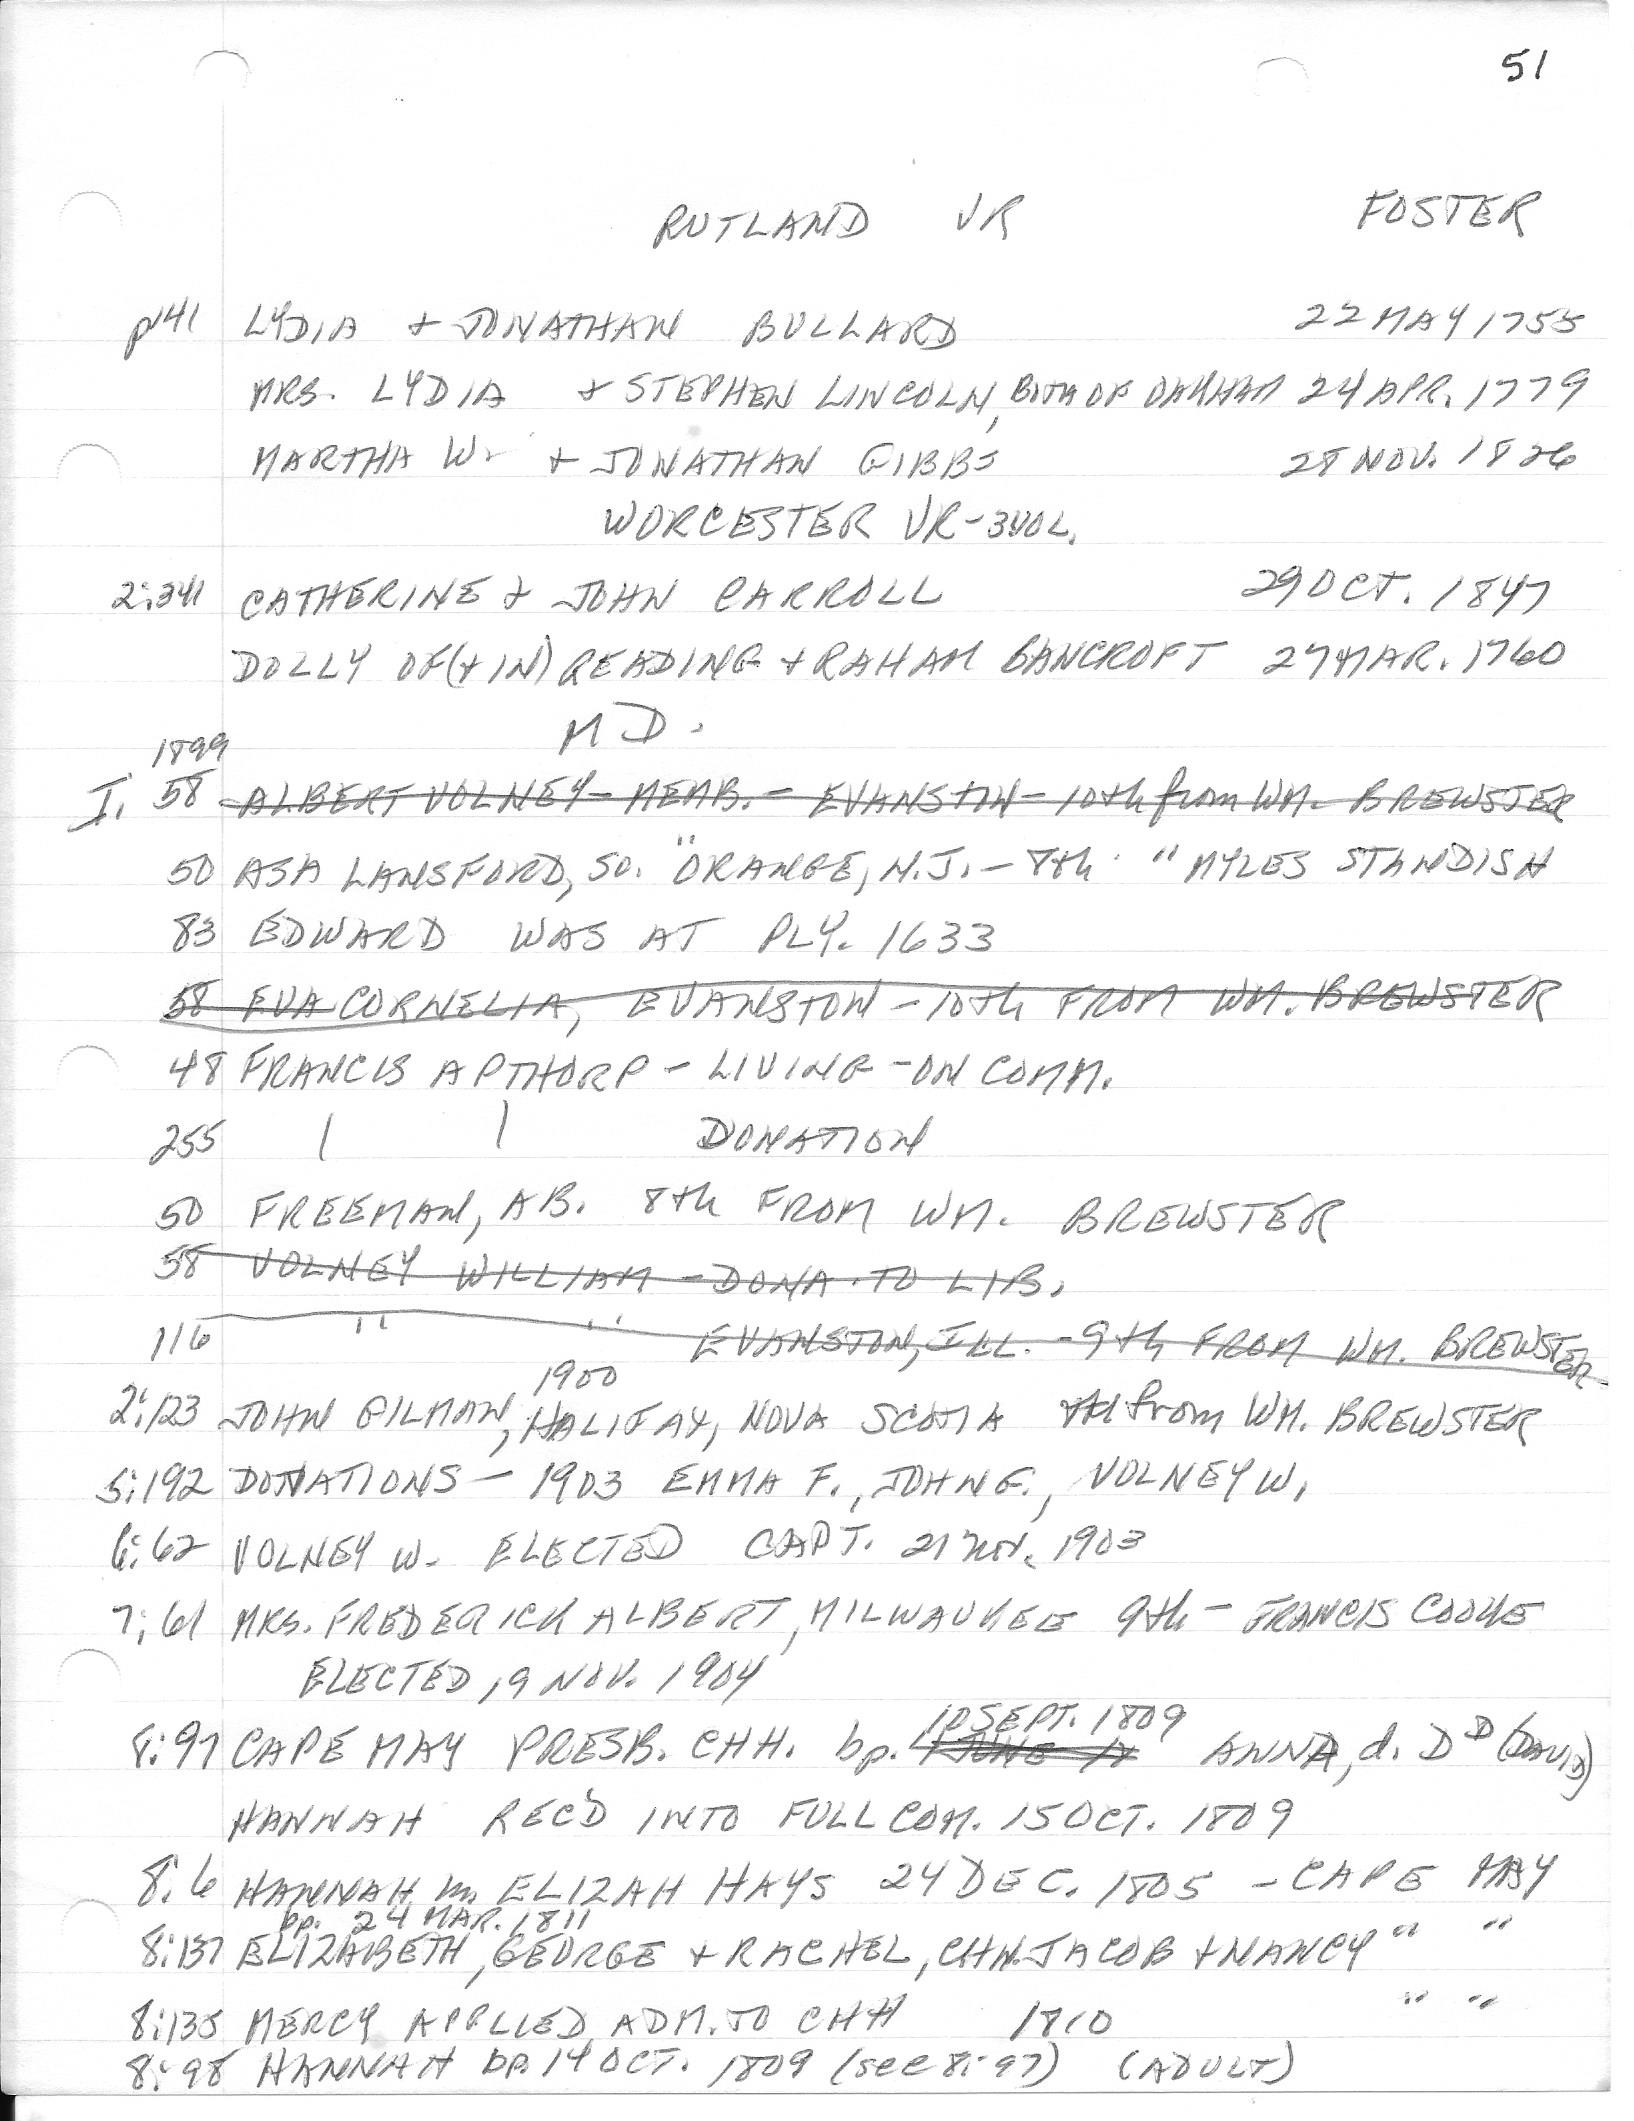 51
RUTLAND VR FOSTER
p141 LYDIA + JONATHAN BULLARD 22 MAY 1755
MRS. LYDIA + STEPHEN LINCOLN, BOTH OF OAKHAM 24 APR. 1779
MARTHA W. + JONATHAN GIBBS 28 NOV. 1826
WORCESTER VR-340L.
2:341 CATHERINE + JOHN CARROLL 29 OCT. 1847
DOLLY OF (+ IN) READING + RAHAM BANCROFT 27 MAR. 1760
1899 MD.
I. 58 ALBERT VOLNEY - MEMB. - EVANSTON - 10th from WM. BREWSTER
50 ASA LANSFORD, SO. ORANGE, N.J. - 8th " MYLES STANDISH
83 EDWARD WAS AT PLY. 1633
58 EVA CORNELIA, EVANSTON - 10th FROM WM. BREWSTER
48 FRANCIS APTHORP - LIVING - ON COMM.
255 | | DONATION
50 FREEMAN, AB. 8th FROM WM. BREWSTER
58 VOLNEY WILLIAM - DONA. TO LIB.
116 " " EVANSTON, ILL. - 9th FROM WM. BREWSTER
1900
2:123 JOHN GILMAN, HALIFAX, NOVA SCOTIA from WM. BREWSTER
5:192 DONATIONS - 1903 EMMA F., JOHN G., VOLNEY W.
6:62 VOLNEY W. ELECTED CAPT. 21 Nov. 1903
7:61 MRS. FREDERICK ALBERT, MILWAUKEE 9th - FRANCIS COOKE
ELECTED, 9 NOV. 1904
10 SEPT. 1809
8:97 CAPE MAY PRESB. CHH. bp. 1 JUNE ANNA, d. DD (DAVID)
HANNAH REC'D INTO FULL COM. 15 OCT. 1809
8:6 HANNAH m. ELIZAH HAYS 24 DEC. 1805 - CAPE MAY
bp. 24 MAR. 1811
8:137 ELIZABETH, GEORGE + RACHEL, CHN. JACOB + NANCY " "
8:135 MERCY APPLIED ADM. TO CHH 1810 " "
8:98 HANNAH bp. 14 OCT. 1809 (see 8:97) (ADULT)